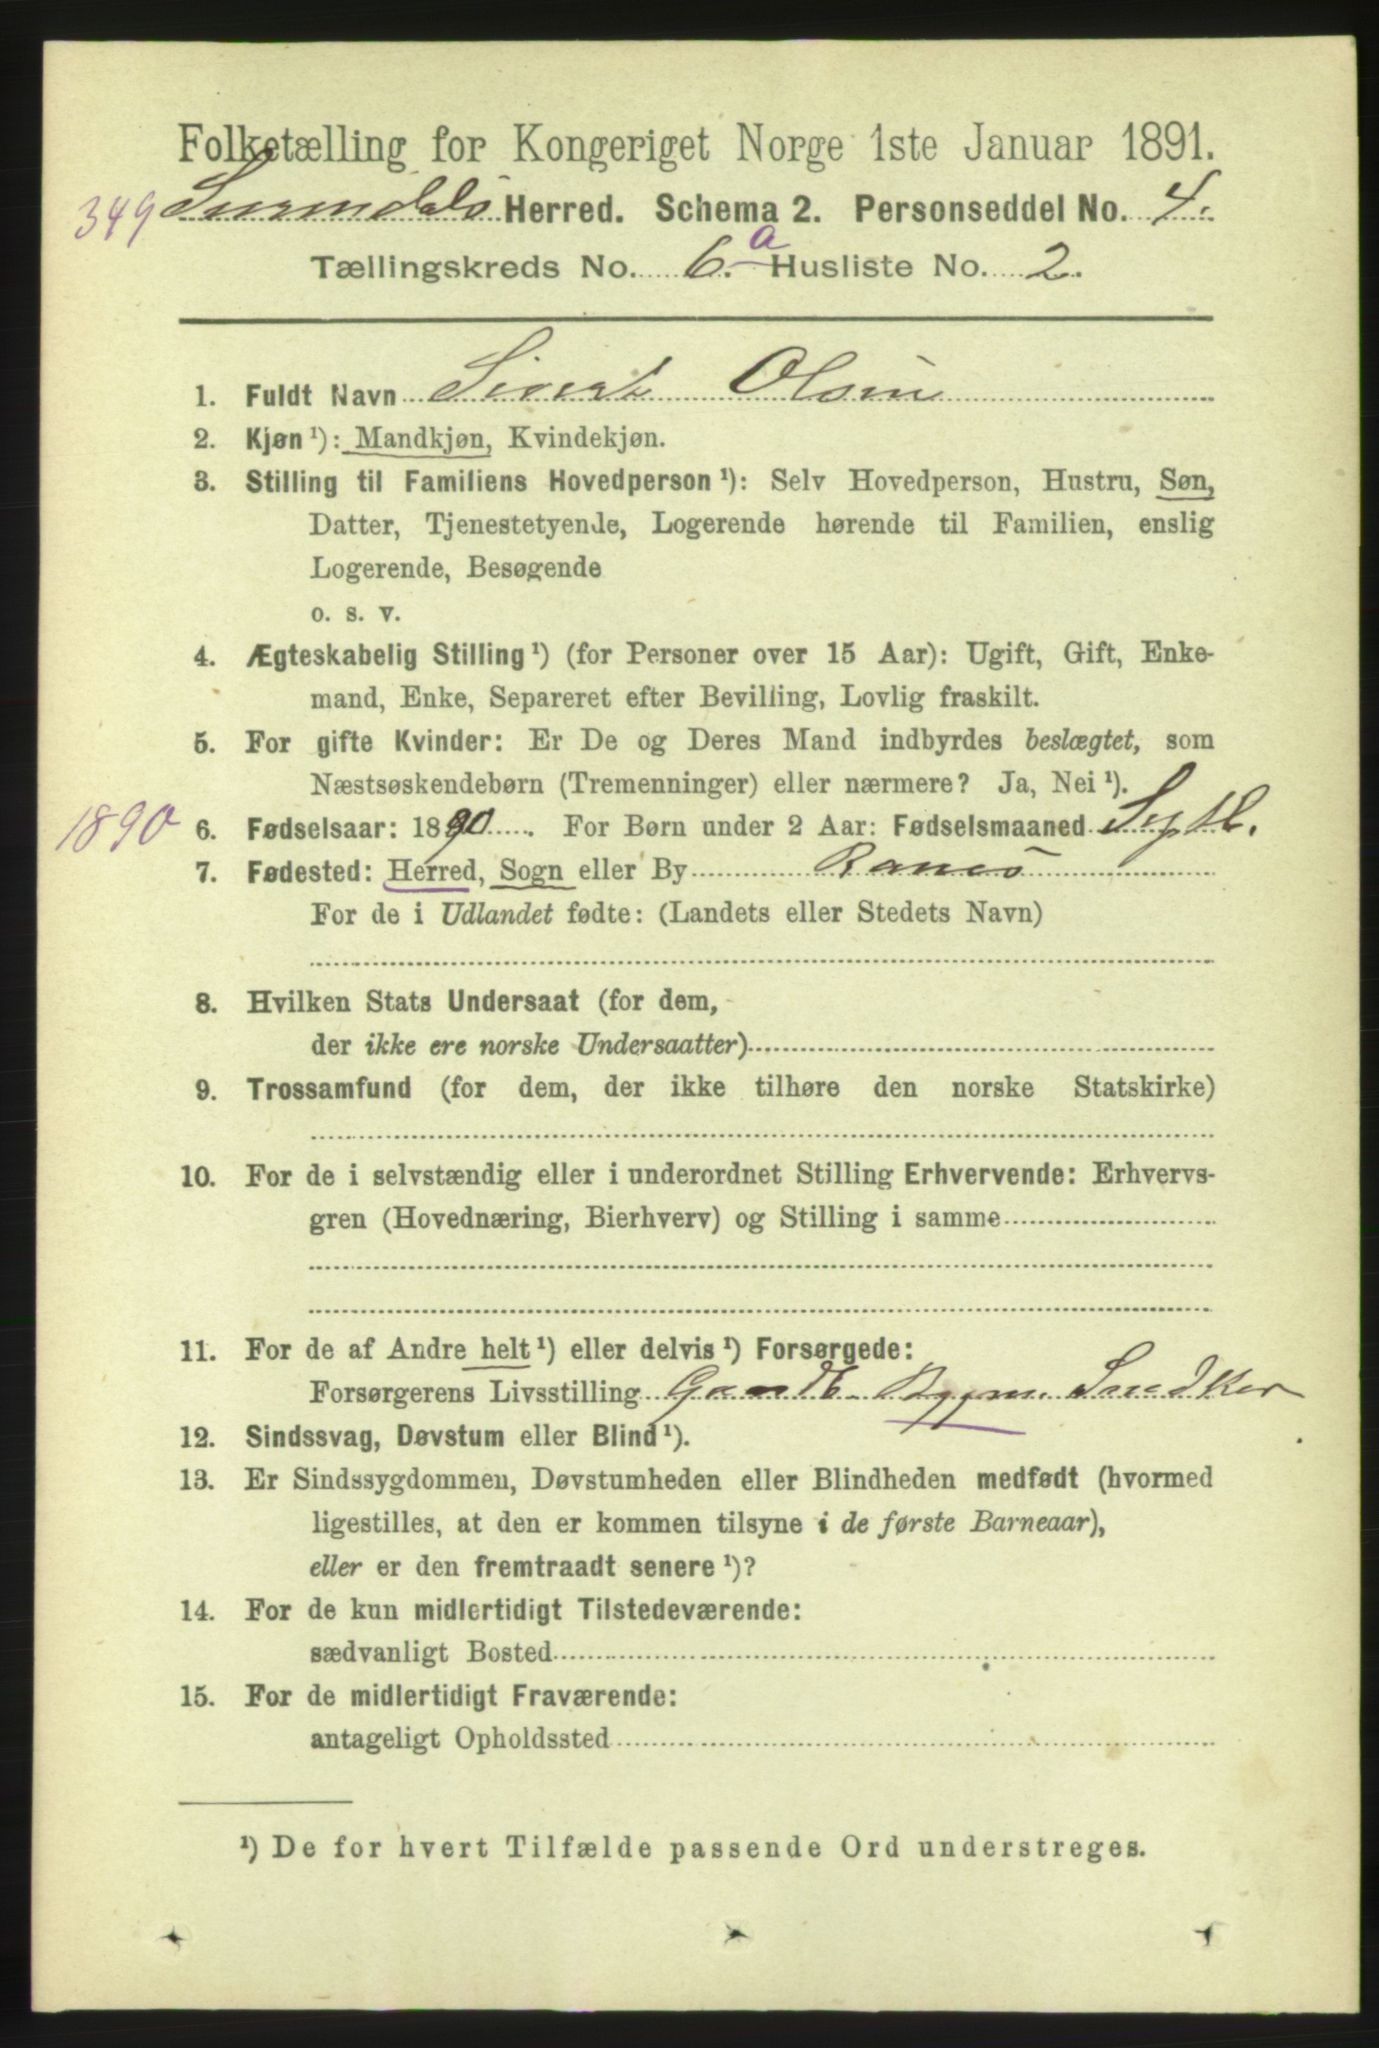 Folketælling for Kongeriget Norge 1ste Januar 1891.
349 Surendals Herred. Schema 2. Personseddel No. 4.
Tællingskreds No. 6.a Husliste No. 2.
1. Fuldt Navn Sivert Olsen
2. Kjøn ¹): Mandkjøn, Kvindekjøn.
3. Stilling til Familiens Hovedperson ¹): Selv Hovedperson, Hustru, Søn,
Datter, Tjenestetyende, Logerende hørende til Familien, enslig
Logerende, Besøgende
o. s. v.
4. Ægteskabelig Stilling ¹) (for Personer over 15 Aar): Ugift, Gift, Enke-
mand, Enke, Separeret efter Bevilling, Lovlig fraskilt.
5. For gifte Kvinder: Er De og Deres Mand indbyrdes beslægtet, som
Næstsøskendebørn (Tremenninger) eller nærmere? Ja, Nei ¹).
1890 6. Fødselsaar: 1890. For Børn under 2 Aar: Fødselsmaaned Sptb.
7. Fødested: Herred, Sogn eller By Ranes
For de i Udlandet fødte: (Landets eller Stedets Navn)
8. Hvilken Stats Undersaat (for dem,
der ikke ere norske Undersaatter)
9. Trossamfund (for dem, der ikke tilhøre den norske Statskirke)
10. For de i selvstændig eller i underordnet Stilling Erhvervende: Erhvervs-
gren (Hovednæring, Bierhverv) og Stilling i samme
11. For de af Andre helt ¹) eller delvis ¹) Forsørgede:
Forsørgerens Livsstilling Gaardb. Bygm. Snedker
12. Sindssvag, Døvstum eller Blind ¹).
13. Er Sindssygdommen, Døvstumheden eller Blindheden medfødt (hvormed
ligestilles, at den er kommen tilsyne i de første Barneaar),
eller er den fremtraadt senere ¹)?
14. For de kun midlertidigt Tilstedeværende:
sædvanligt Bosted
15. For de midlertidigt Fraværende:
antageligt Opholdssted
¹) De for hvert Tilfælde passende Ord understreges.